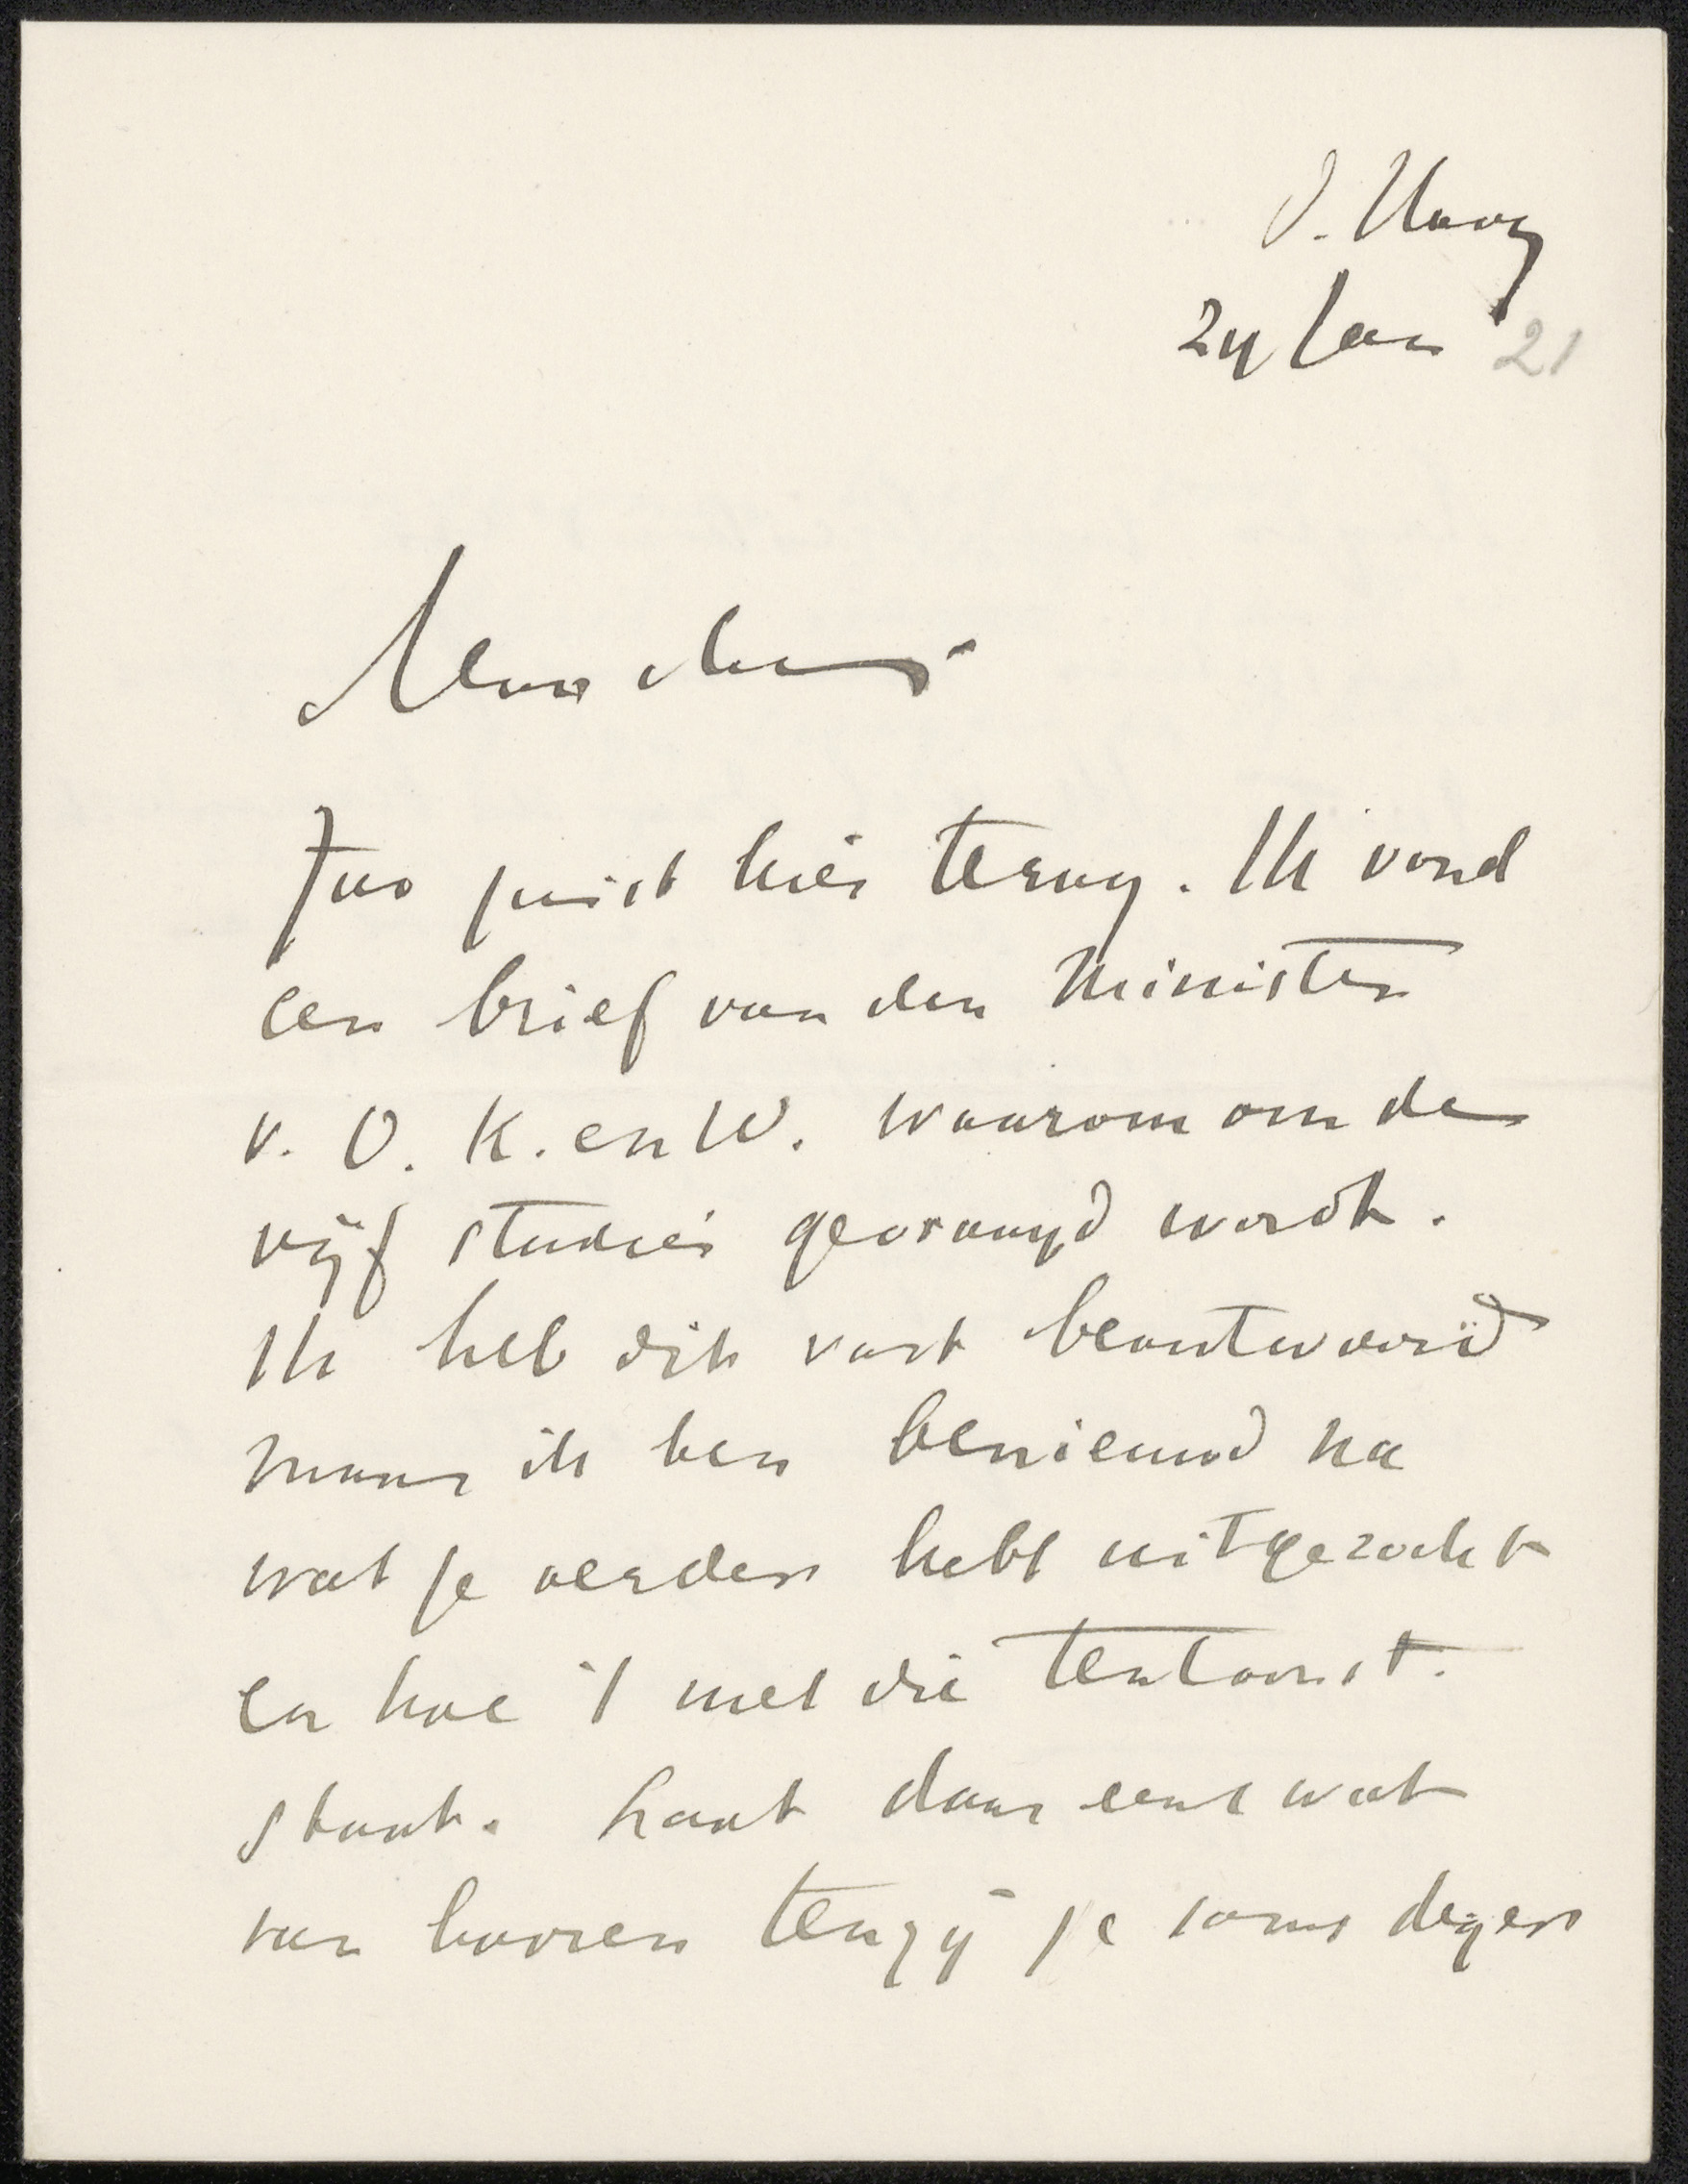 d. Haag
24 Jan 21
Zoo juist hier terug. Ik vond
een brief van den Minister
v. O. K. en W. waarom om de
vijf studies gevraagd wordt.
Ik heb dit vast beantwoord
maar ik ben benieuwd na
wat je verder hebt uitgezocht
en hoe 't met die tentoonst.
staat. Laat daar eens wat
van hooren tenzij je soms dezer